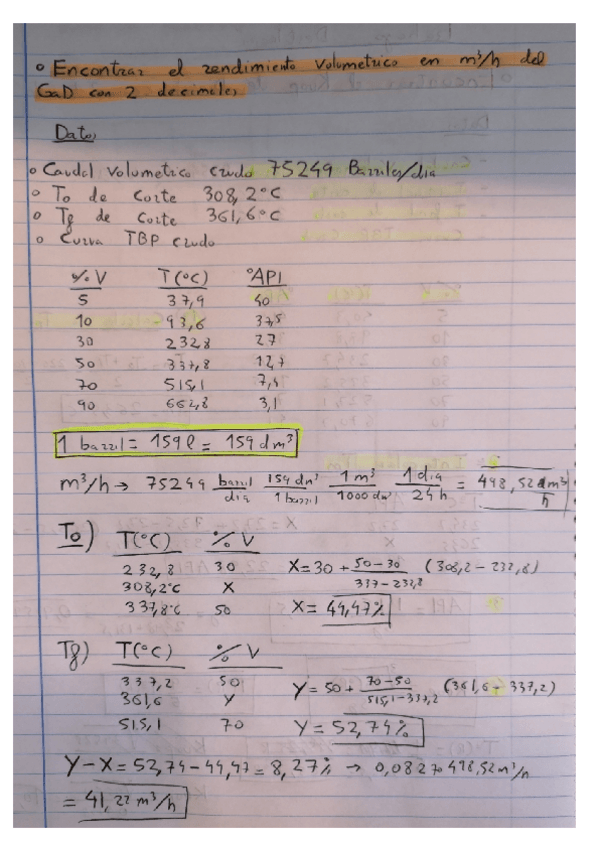 ° Encontrar el rendimiento volumetrico en m³/h del
GaD con 2 decimales
Datos
° Caudal Volumetrico crudo 75249 Barriles/dia
° To de corte 308,2°C
° Tf de corte 361,6°C
° Curva TBP crudo
% V T(°C) °API
5 37,9 40
10 93,6 37,5
30 232,8 27
50 337,8 12,7
70 515,1 7,4
90 662,8 3,1
1 barril = 159 l = 159 dm³
m³/h → 75249 barril/dia 159 dm³/1 barril 1 m³/1000 dm³ 1 dia/24 h = 498,52 dm³/h
To) T(°C) % V
232,8 30 X = 30 + 50-30/337-232,8 (308,2 - 232,8)
308,2°C X
337,8°C 50 X = 44,47%
Tf) T(°C) % V
337,2 50 Y = 50 + 70-50/515,1-337,2 (361,6 - 337,2)
361,6 Y
515,1 70 Y = 52,74%
Y - X = 52,74 - 44,47 = 8,27% → 0,0827 · 498,52 m³/h
= 41,22 m³/h